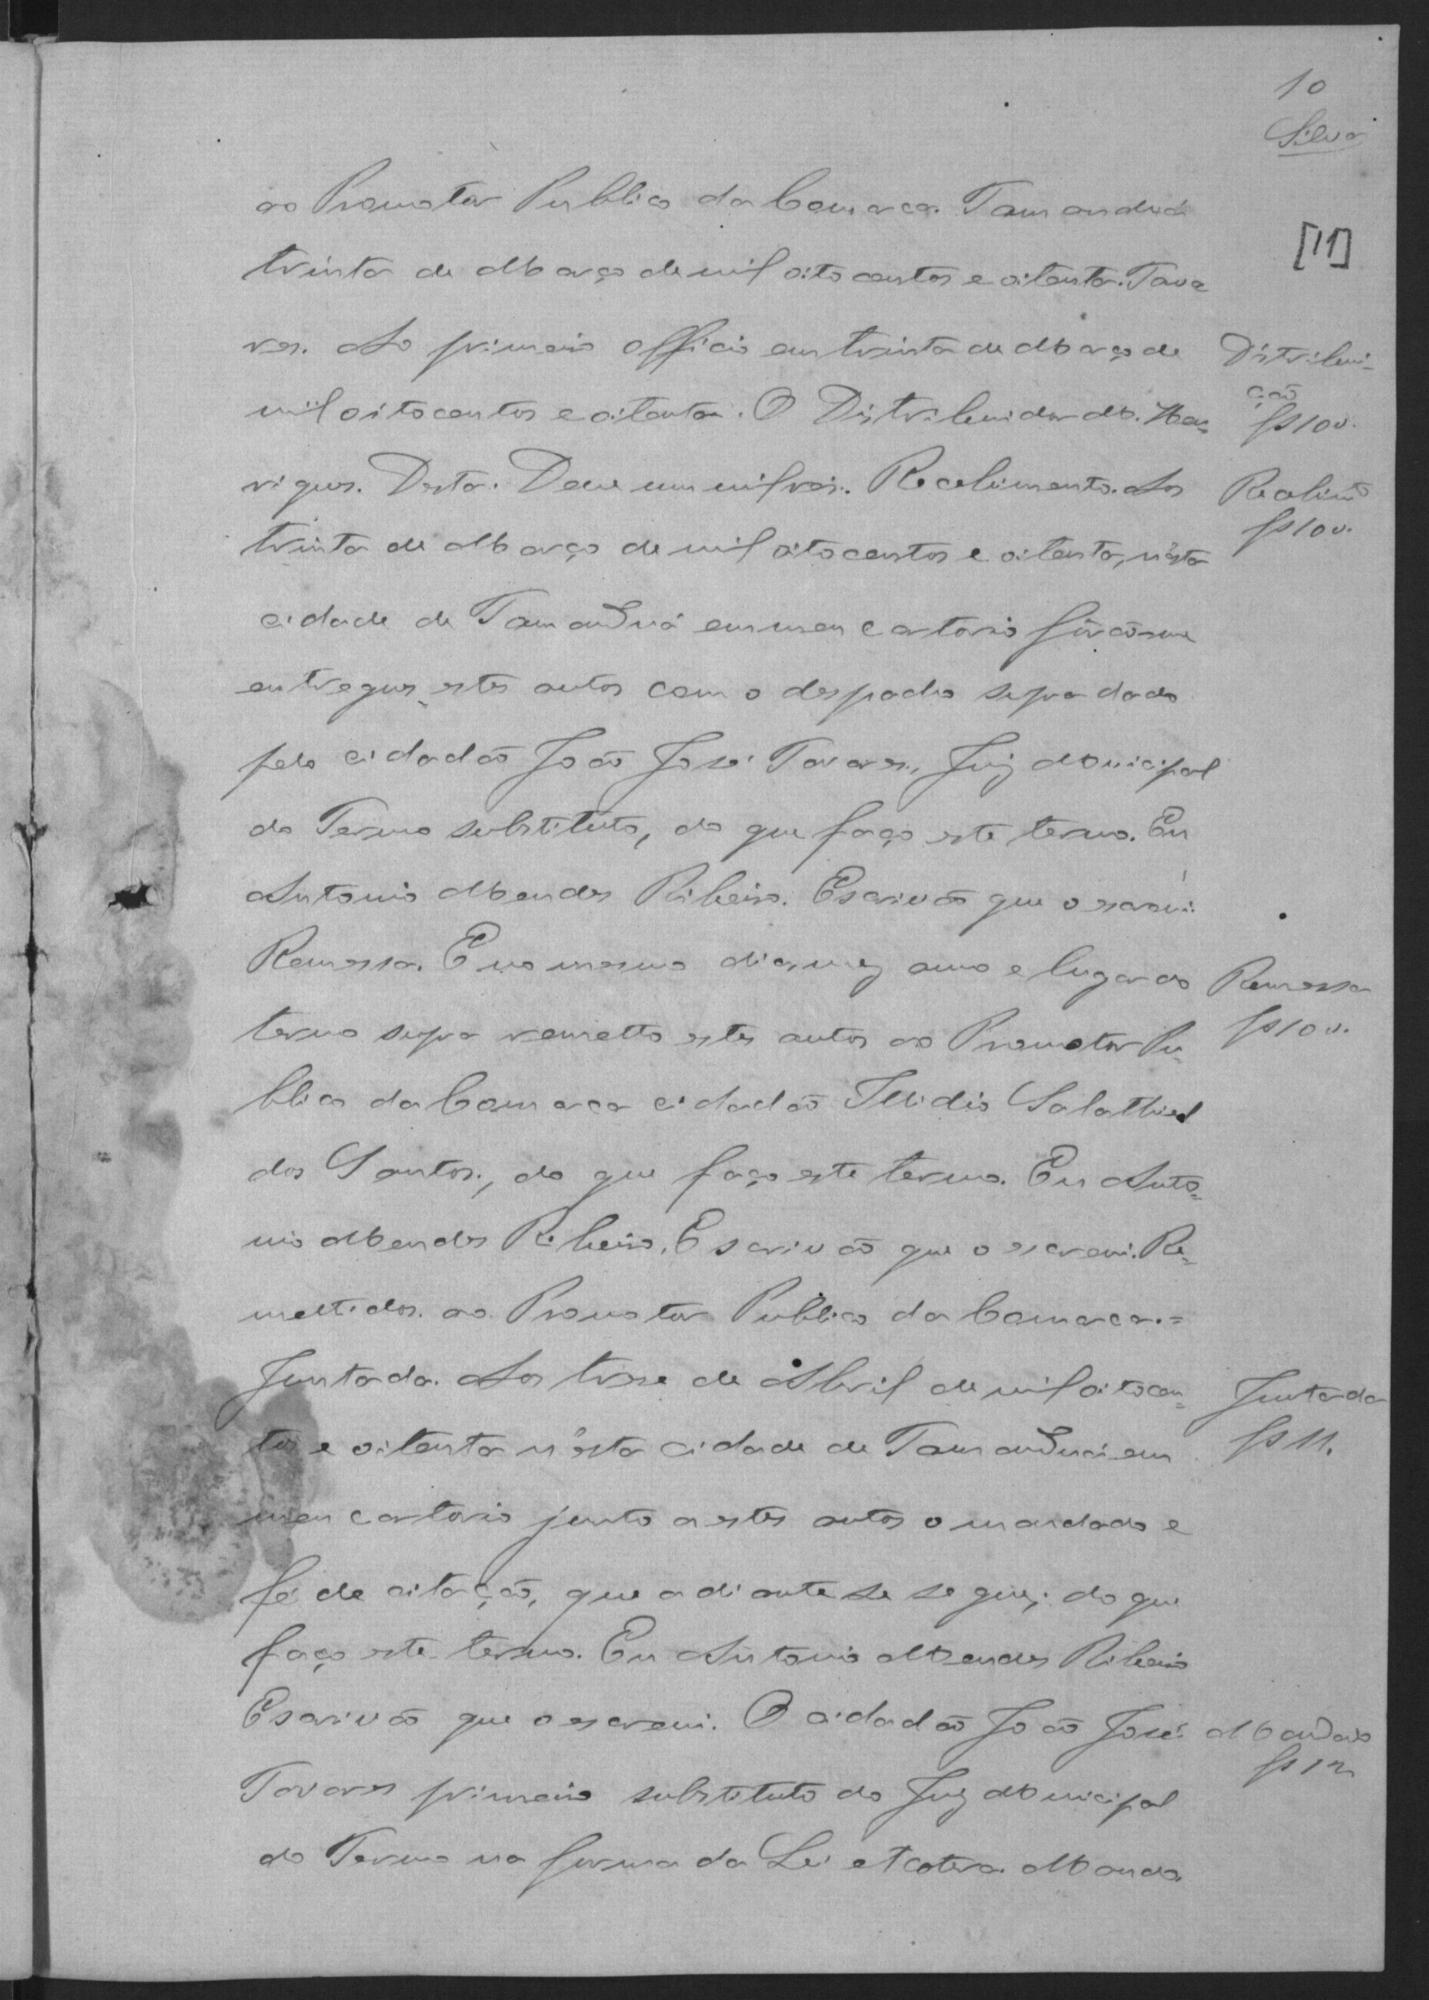 10
Silva
[11]
ao Promotor Publico da Comarca. Tamanduá
trinta de Março de mil oito centos e oitenta. Tava
res. Ao primeiro officio em trinta de Março de
Distribui-
ção
fs 10 v.
mil oito centos e oitenta. O Distribuidor M. Hen=
riques. Desta. Deve um mil reis. Recebimento. Aos
Recebimto
fs 10 v.
trinta de Março de mil oito centos e oitenta, n'esta
cidade de Tamanduá em meu cartorio forão me
entregues estes autos com o despacho supra dado
pelo cidadão João José Tavares, Juiz Municipal
do Termo substituto, do que faço este termo. Eu
Antonio Mendes Ribeiro. Escrivão que o escrevi.
Remessa. E no mesmo dia, mez anno e lugar do
Remessa
fs 10 v.
termo supra remetto estes autos ao Promotor Pu-
blico da Comarca cidadão Illidio Salathiel
dos Santos, do que faço este termo. Eu Anto=
nio Mendes Ribeiro, Escrivão que o escrevi. Re=
mettidos ao Promotor Publico da Comarca.=
Juntada. Aos trese de Abril de mil oito cen=
Juntada
fs 11.
tos e oitenta n'esta cidade de Tamanduá em
meu cartorio junto a estes autos o mandado e
fé de citação, que adiante se segue; do que
faço este termo. Eu Antonio Mendes Ribeiro
Escrivão que o escrevi. O cidadão João José
Mandado
fs 12
Tavares primeiro substituto do Juiz Municipal
do Termo na forma da Lei etcetera. Mando